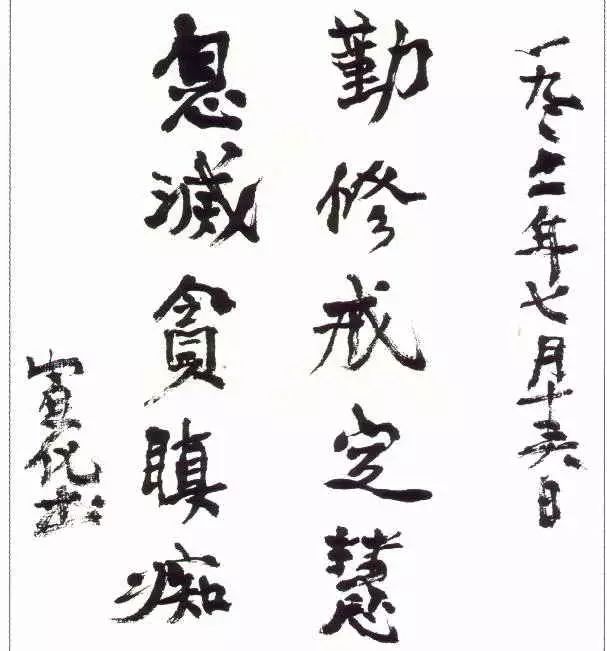 一九二年七月十六日
勤修戒定慧
息滅貪瞋痴
宣化书